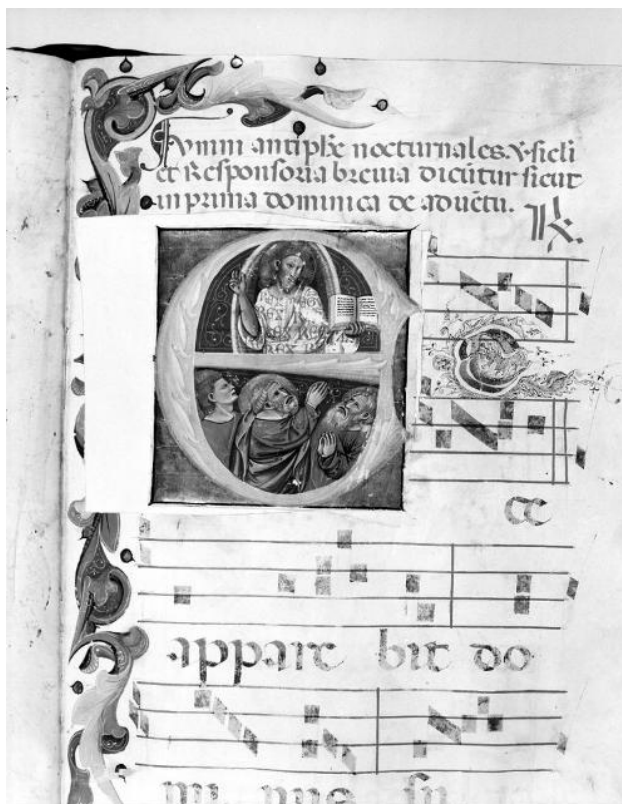 Hymni antiphe nocturnales. V̄sicli
et Responsoria breuia dicūtur sicut
in prima dominica de aduētu.
R̄.
E
C
ce
appare bit do
mi nus su